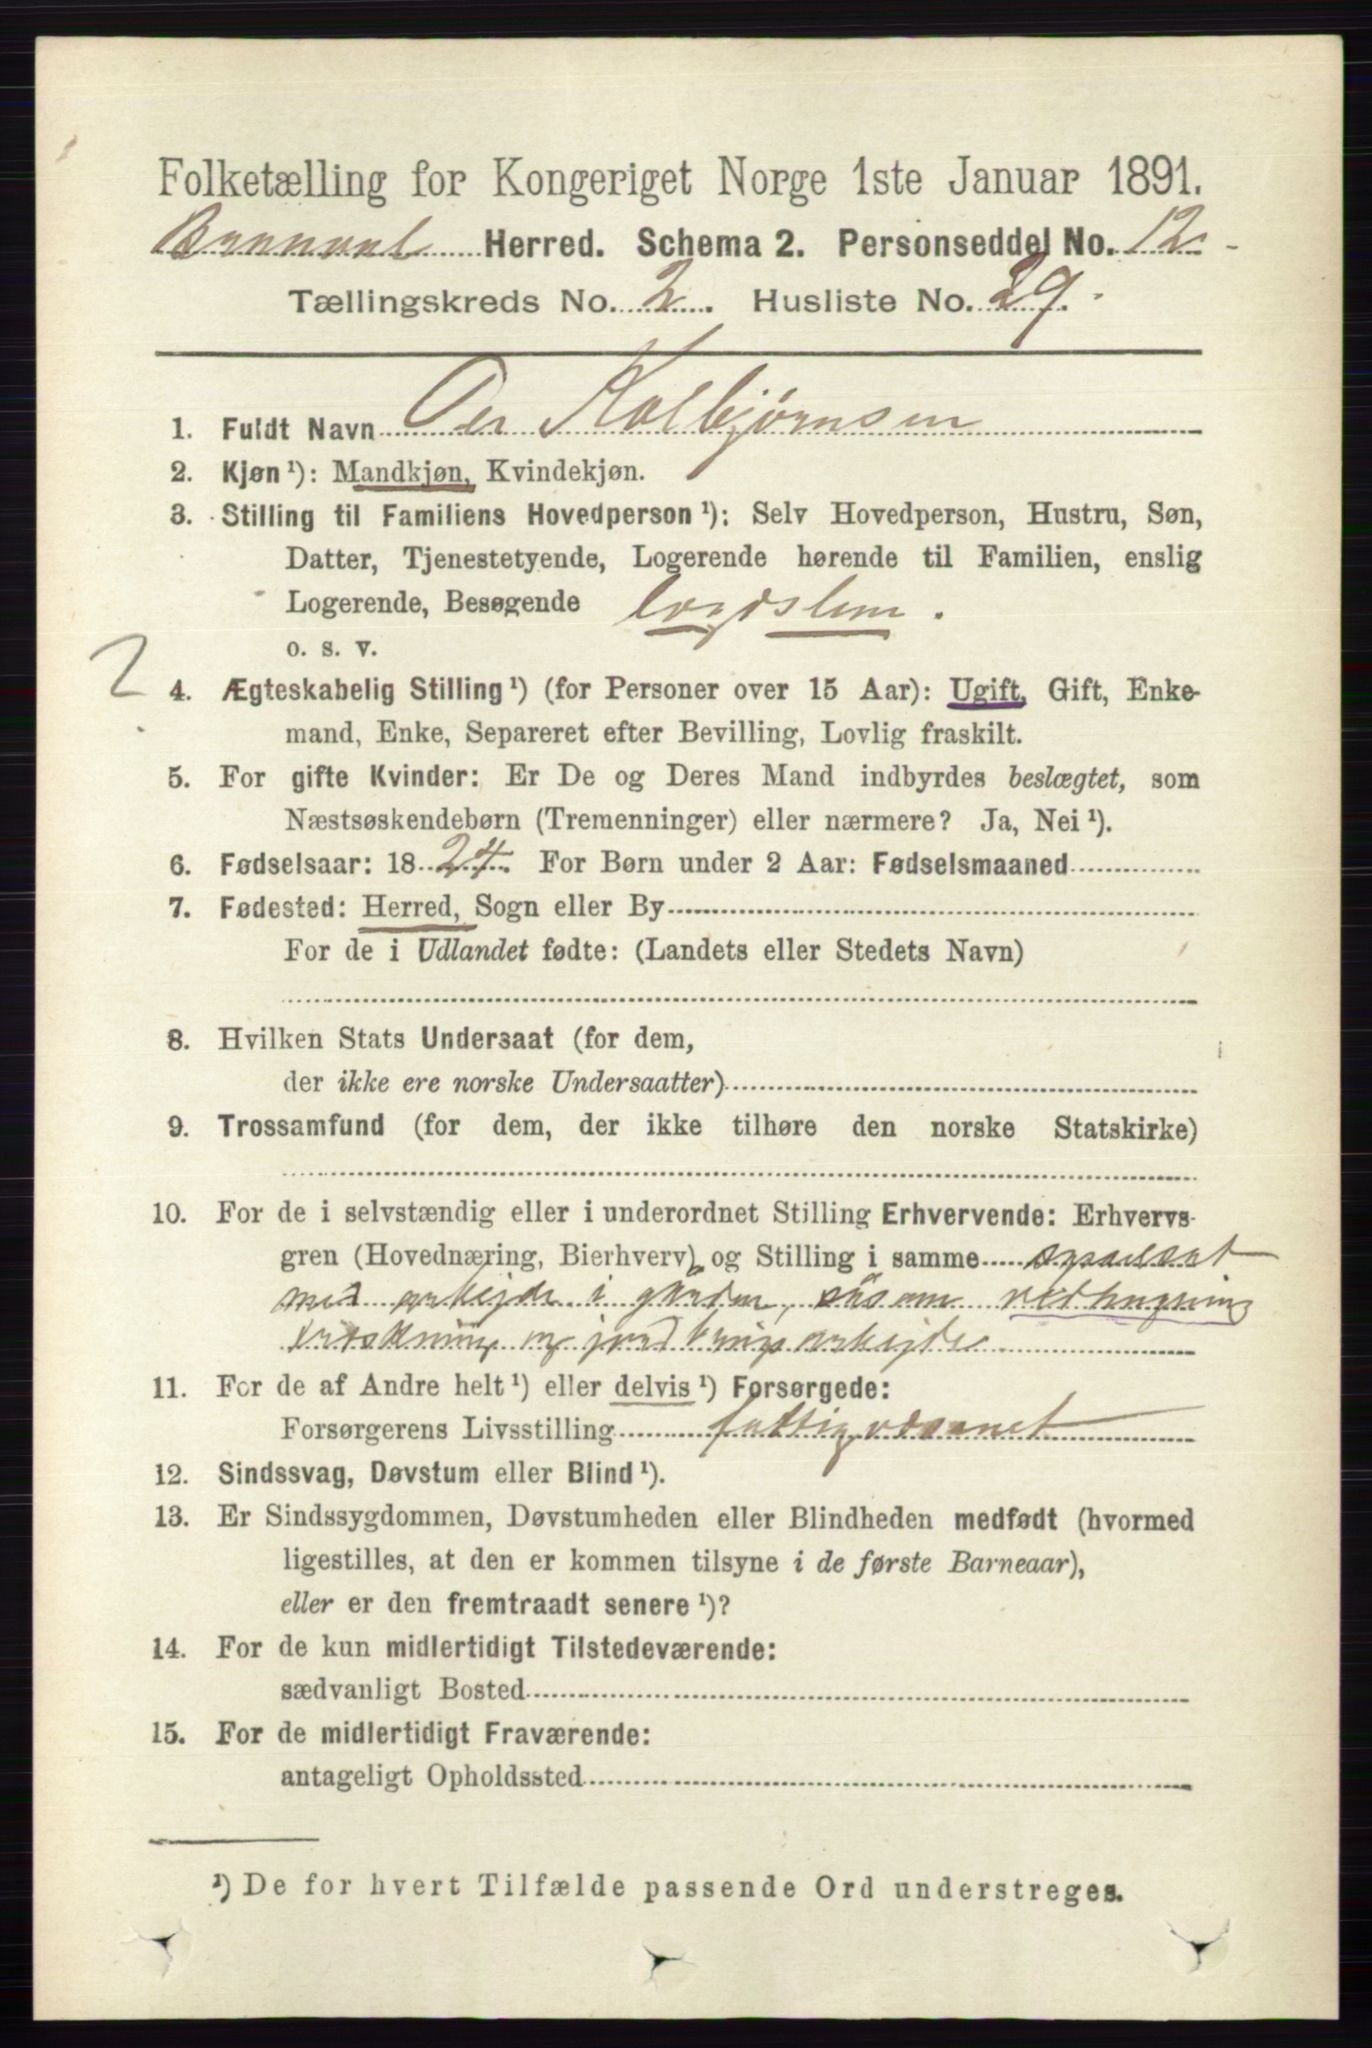 Folketælling for Kongeriget Norge 1ste Januar 1891.
Herred. Schema 2. Personseddel No. 12.
Tællingskreds No. 2. Husliste No. 29.
1. Fuldt Navn Per Kolbjørnsen
2. Kjøn ¹): Mandkjøn, Kvindekjøn.
3. Stilling til Familiens Hovedperson ¹): Selv Hovedperson, Hustru, Søn,
Datter, Tjenestetyende, Logerende hørende til Familien, enslig
Logerende, Besøgende legdslem.
o. s. v.
2
4. Ægteskabelig Stilling ¹) (for Personer over 15 Aar): Ugift, Gift, Enke-
mand, Enke, Separeret efter Bevilling, Lovlig fraskilt.
5. For gifte Kvinder: Er De og Deres Mand indbyrdes beslægtet, som
Næstsøskendebørn (Tremenninger) eller nærmere? Ja, Nei ¹).
6. Fødselsaar: 1824. For Børn under 2 Aar: Fødselsmaaned
7. Fødested: Herred, Sogn eller By
For de i Udlandet fødte: (Landets eller Stedets Navn)
8. Hvilken Stats Undersaat (for dem,
der ikke ere norske Undersaatter)
9. Trossamfund (for dem, der ikke tilhøre den norske Statskirke)
10. For de i selvstændig eller i underordnet Stilling Erhvervende: Erhvervs-
gren (Hovednæring, Bierhverv) og Stilling i samme
med arbejde i gården, såsom vedhugning
trøskning og jordbrugsarbejde
11. For de af Andre helt ¹) eller delvis ¹) Forsørgede:
Forsørgerens Livsstilling fattigvæsenet
12. Sindssvag, Døvstum eller Blind ¹).
13. Er Sindssygdommen, Døvstumheden eller Blindheden medfødt (hvormed
ligestilles, at den er kommen tilsyne i de første Barneaar),
eller er den fremtraadt senere ¹)?
14. For de kun midlertidigt Tilstedeværende:
sædvanligt Bosted
15. For de midlertidigt Fraværende:
antageligt Opholdssted
¹) De for hvert Tilfælde passende Ord understreges.